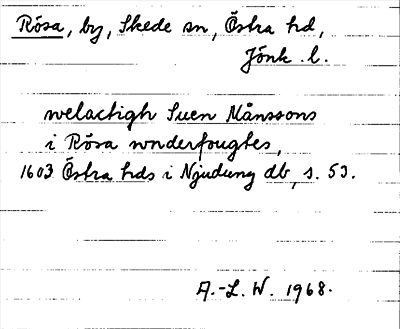 Rösa, by, Skede sn, Östra hd,
Jönk. l.
welactigh Suen Månssons
i Rösa wnderfougtes,
1603 Östra hds i Njudung db, s. 53.
A.-L. W. 1968.